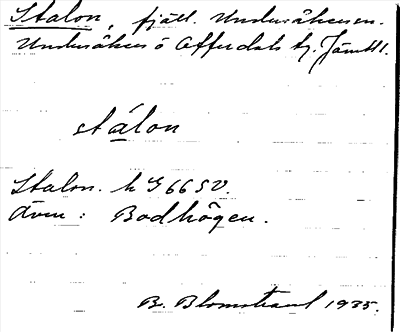 Stalon, fjäll. Undersåkersn.
Undersåkers o Offerdals tg. Jämtl.
stálon
Stalon. h G 66 SV.
Även: Bodhögen.
B. Blomstrand 1935.